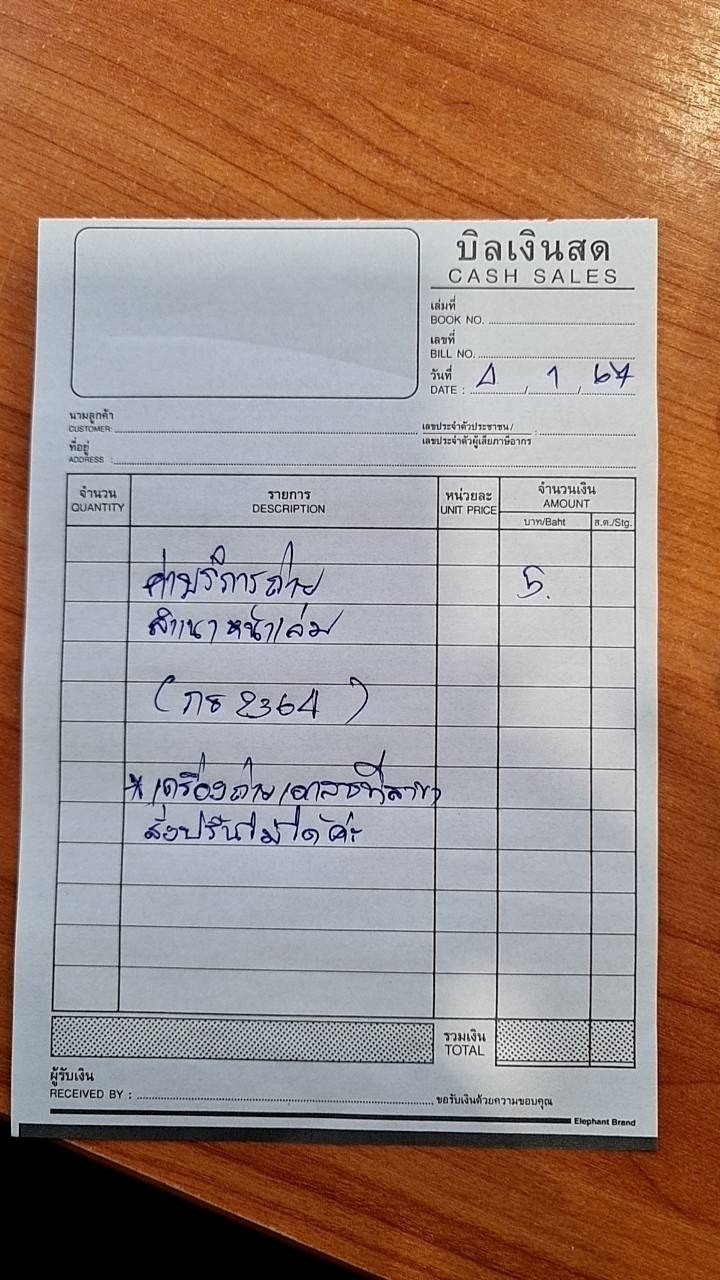 บิลเงินสด
CASH SALES
เล่มที่
BOOK NO.
เลขที่
BILL NO.
วันที่
DATE : 4 / 1 / 67
นามลูกค้า
CUSTOMER:
เลขประจำตัวประชาชน /
เลขประจำตัวผู้เสียภาษีอากร :
ที่อยู่
ADDRESS :
จำนวน รายการ หน่วยละ จำนวนเงิน
QUANTITY DESCRIPTION UNIT PRICE AMOUNT
บาท/Baht ส.ต./Stg.
ค่าบริการถ่าย 5.
สำเนาหน้าเล่ม
(กธ 2364)
* เครื่องถ่ายเอกสารที่สาขา
สั่งปริ้นไม่ได้ค่ะ
รวมเงิน
TOTAL
ผู้รับเงิน
RECEIVED BY : ขอรับเงินด้วยความขอบคุณ
Elephant Brand